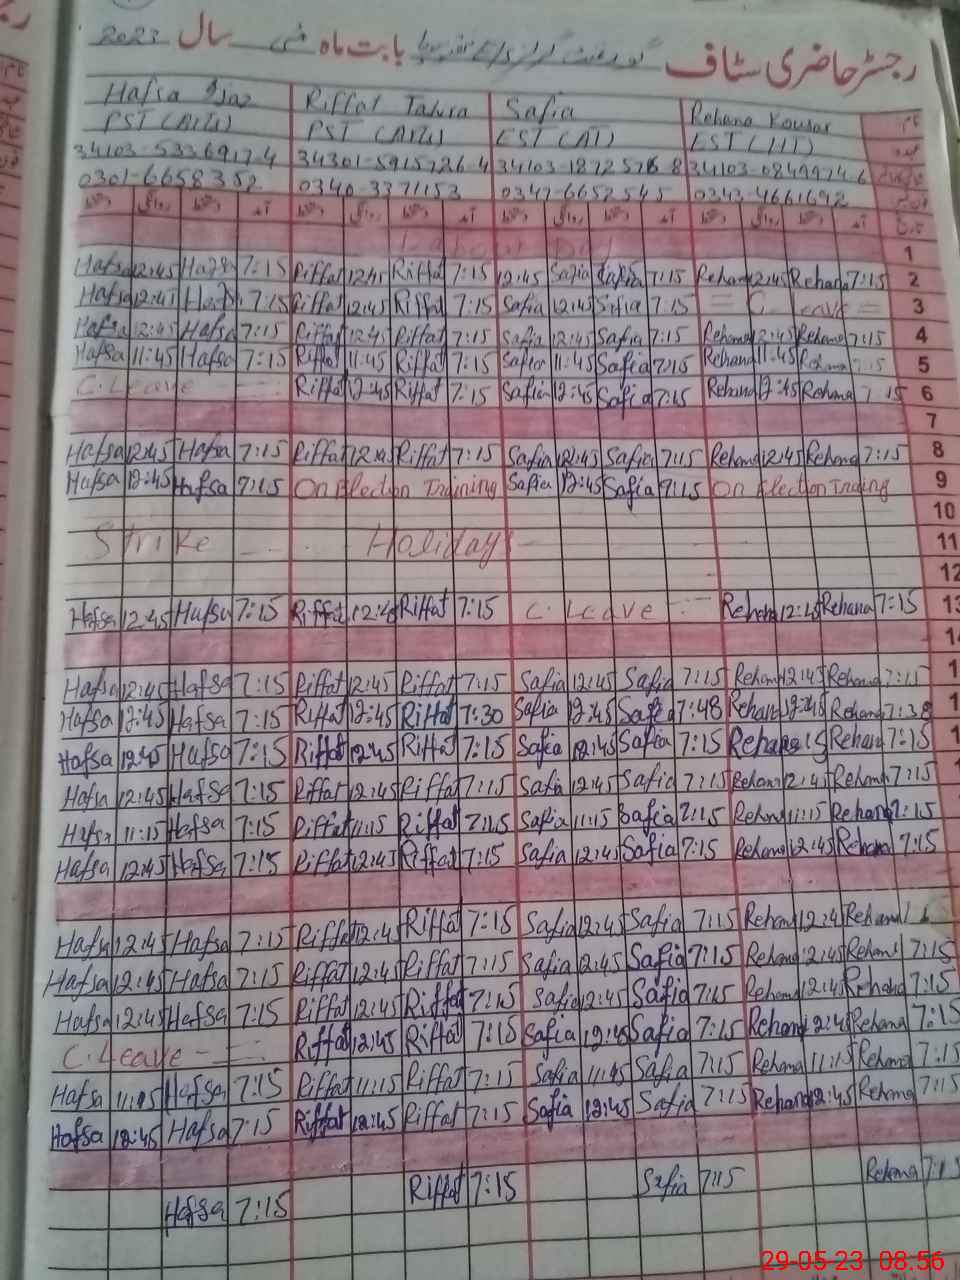 رجسٹر حاضری سٹاف گورنمنٹ گرلز بابت ماہ مئی سال 2023
Hafsa Ijaz Riffat Tahira Safia Rehana Kousar نام
PST (Arts) PST (Arts) EST (AT) EST عہدہ
34103-5336917-4 34301-5915726-4 34103-1872576-8 34103-0849974-6
0301-6658352 0340-3371153 0347-6652545 0343-4661692
دستخط روانگی دستخط آمد دستخط روانگی دستخط آمد دستخط روانگی دستخط آمد دستخط روانگی دستخط آمد تاریخ
Labour Day 1
Hafsa 12:45 Hafsa 7:15 Riffat 12:45 Riffat 7:15 12:45 Safia Safia 7:15 Rehana 12:45 Rehana 7:15 2
Hafsa 12:45 Hafsa 7:15 Riffat 12:45 Riffat 7:15 Safia 12:45 Safia 7:15 = C. Leave = 3
Hafsa 12:45 Hafsa 7:15 Riffat 12:45 Riffat 7:15 Safia 12:45 Safia 7:15 Rehana 12:45 Rehana 7:15 4
Hafsa 11:45 Hafsa 7:15 Riffat 11:45 Riffat 7:15 Safia 11:45 Safia 7:15 Rehana 11:45 Rehana 7:15 5
C. Leave Riffat 12:45 Riffat 7:15 Safia 12:45 Safia 7:15 Rehana 12:45 Rehana 7:15 6
7
Hafsa 12:45 Hafsa 7:15 Riffat 12:45 Riffat 7:15 Safia 12:45 Safia 7:15 Rehana 12:45 Rehana 7:15 8
Hafsa 12:45 Hafsa 7:15 On Election Training Safia 12:45 Safia 7:15 On Election Traing 9
10
Strike Holidays 11
12
Hafsa 12:45 Hafsa 7:15 Riffat 12:45 Riffat 7:15 C. Leave Rehana 12:45 Rehana 7:15 13
Hafsa 12:45 Hafsa 7:15 Riffat 12:45 Riffat 7:15 Safia 12:45 Safia 7:15 Rehana 12:45 Rehana 7:15
Hafsa 12:45 Hafsa 7:15 Riffat 12:45 Riffat 7:30 Safia 12:45 Safia 7:48 Rehana 12:45 Rehana 7:38
Hafsa 12:45 Hafsa 7:15 Riffat 12:45 Riffat 7:15 Safia 12:45 Safia 7:15 Rehana Rehana 7:15
Hafsa 12:45 Hafsa 7:15 Riffat 12:45 Riffat 7:15 Safia 12:45 Safia 7:15 Rehana 12:45 Rehana 7:15
Hafsa 11:15 Hafsa 7:15 Riffat 11:15 Riffat 7:15 Safia 11:15 Safia 7:15 Rehana 11:15 Rehana 7:15
Hafsa 12:45 Hafsa 7:15 Riffat 12:45 Riffat 7:15 Safia 12:45 Safia 7:15 Rehana 12:45 Rehana 7:15
Hafsa 12:45 Hafsa 7:15 Riffat 12:45 Riffat 7:15 Safia 12:45 Safia 7:15 Rehana 12:4 Rehana
Hafsa 12:45 Hafsa 7:15 Riffat 12:45 Riffat 7:15 Safia 12:45 Safia 7:15 Rehana 12:45 Rehana 7:15
Hafsa 12:45 Hafsa 7:15 Riffat 12:45 Riffat 7:15 Safia 12:45 Safia 7:15 Rehana 12:45 Rehana 7:15
C. Leave Riffat 12:45 Riffat 7:15 Safia 12:45 Safia 7:15 Rehana 12:45 Rehana 7:15
Hafsa 11:15 Hafsa 7:15 Riffat 11:15 Riffat 7:15 Safia 11:15 Safia 7:15 Rehana 11:15 Rehana 7:15
Hafsa 12:45 Hafsa 7:15 Riffat 12:45 Riffat 7:15 Safia 12:45 Safia 7:15 Rehana 12:45 Rehana 7:15
Hafsa 7:15 Riffat 7:15 Safia 7:15 Rehana 7:15
29-05-23 08:56